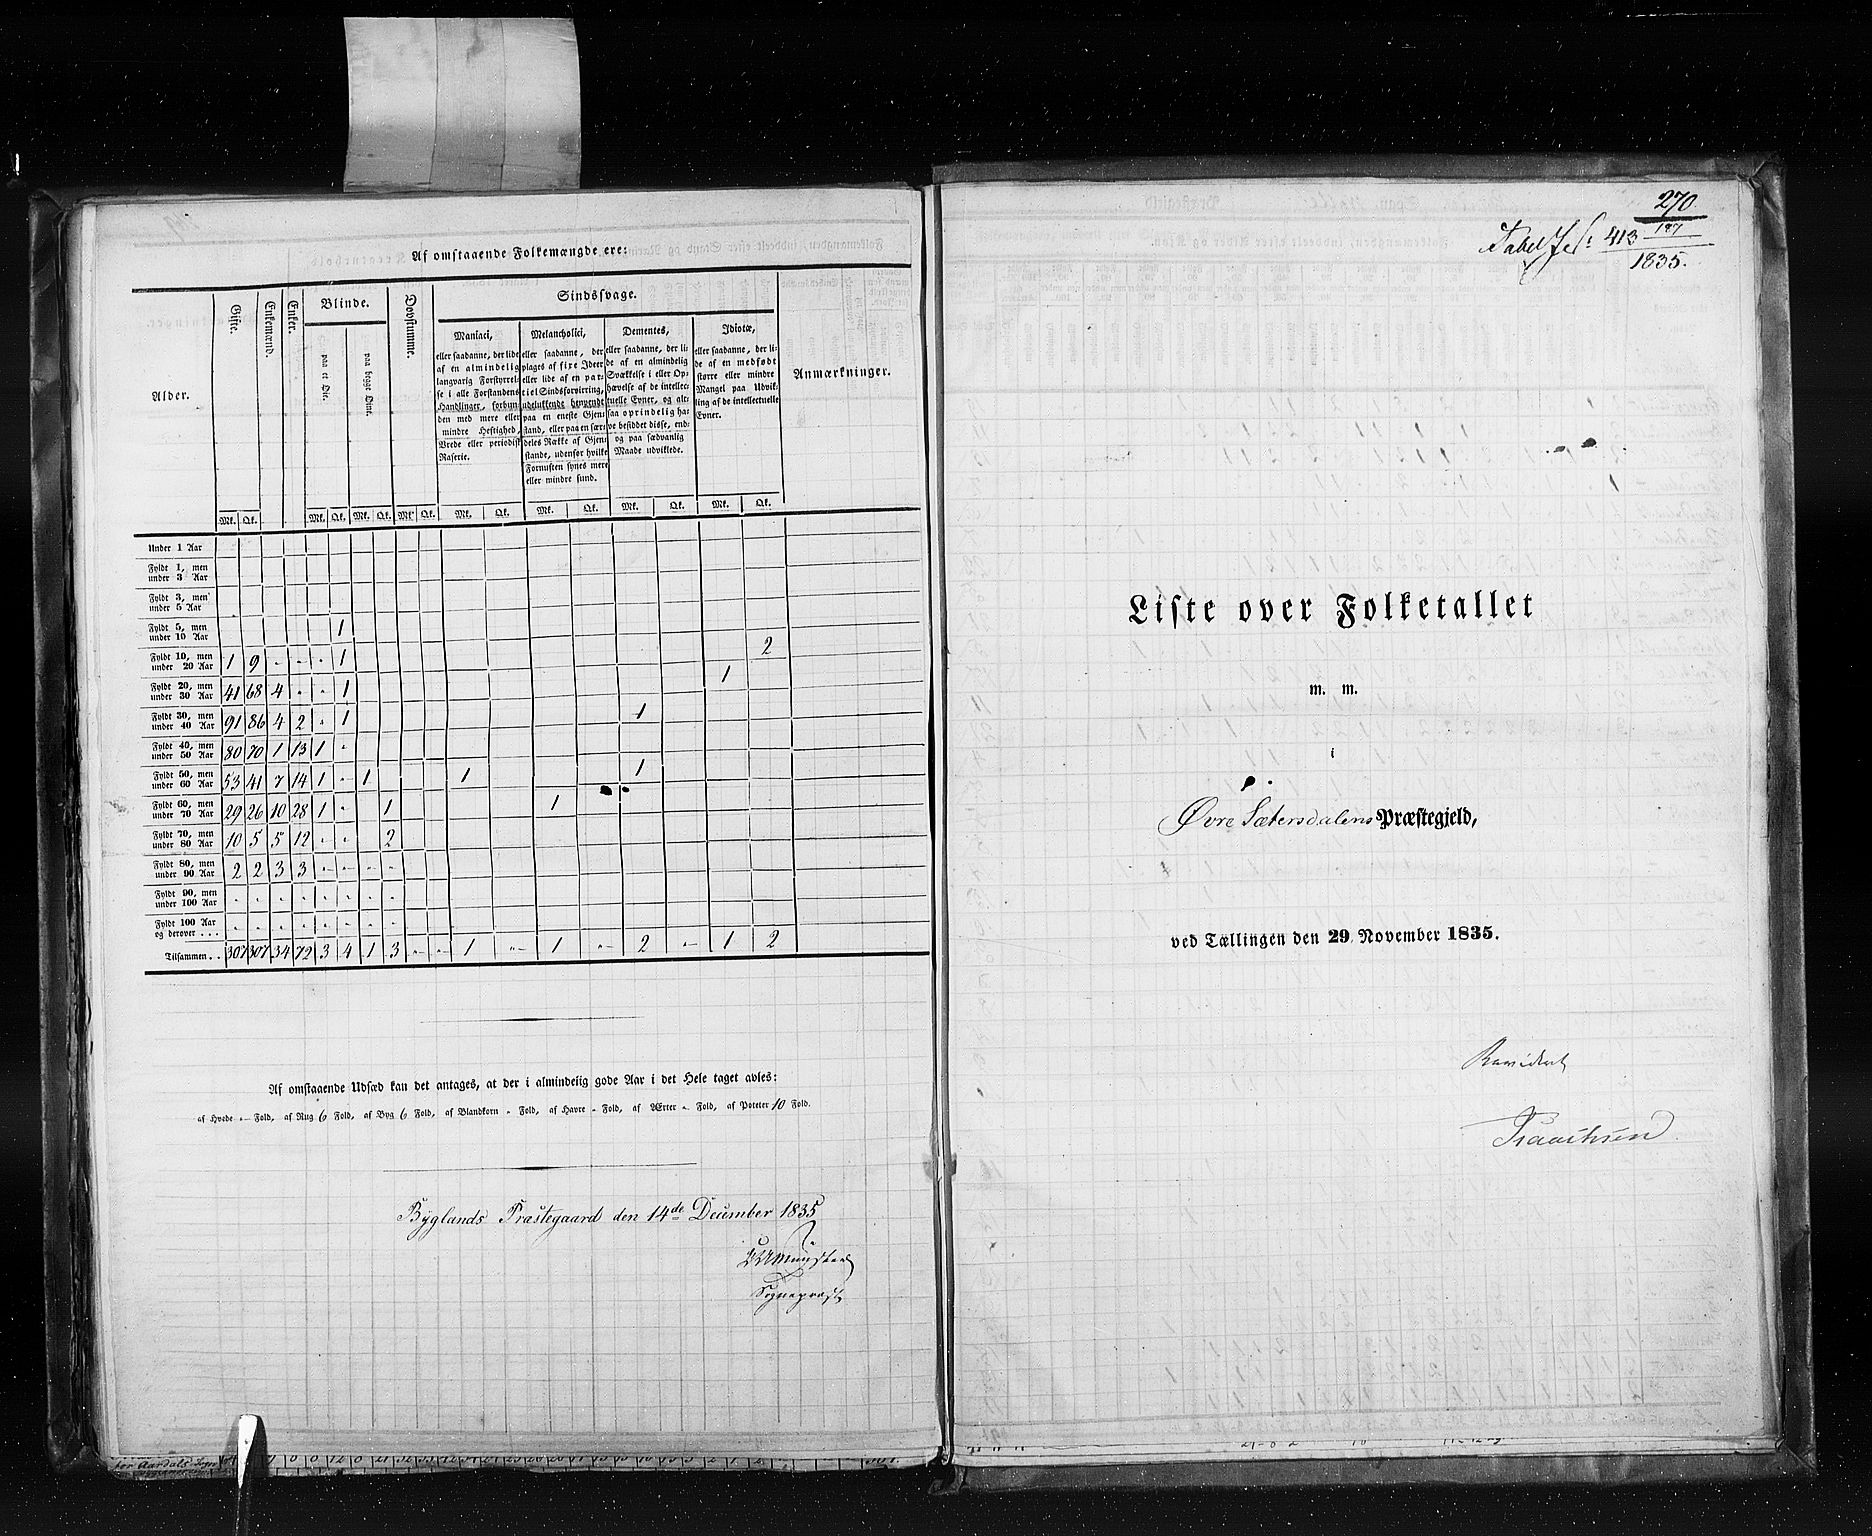 Af omstaaende Folkemængde ere:
Alder. Gifte. Enkemænd. Enker. Blinde. Døvstumme. Sindssvage. Anmærkninger.
paa et Øie. paa begge Øine.
Maniaci,
eller saadanne, der lide
af en almindelig
langvarig Forstyrrel-
se i alle Forstandens
Handlinger, forbun-
den med mere eller
mindre Heftighed,
Vrede eller periodisk
Raserie.
Melancholici,
eller saadanne, der
plages af fixe Ideer
eller lide af en par-
tiel Sindsforvirring,
udelukkende henvendt
paa en eneste Gjen-
stand, eller paa en sær-
deles Række af Gjen-
stande, udenfor hvilke
Fornuften synes mere
eller mindre sund.
Dementes,
eller saadanne, der li-
de af en almindelig
Svækkelse i eller Op-
hævelse af de intellec-
tuelle Evner, og alt-
saa oprindelig ha-
ve besiddet disse, end-
og paa sædvanlig
Maade udviklede.
Idiotæ,
eller saadanne, der li-
de af en medfødt
større eller mindre
Mangel paa Udvik-
ling af de intellectuelle
Evner.
Mk. Qk. Mk. Qk. Mk. Qk. Mk. Qk. Mk. Qk. Mk. Qk. Mk. Qk. Mk. Qk.
Under 1 Aar
Fyldt 1, men
under 3 Aar
Fyldt 3, men
under 5 Aar
Fyldt 5, men
under 10 Aar 1
Fyldt 10, men
under 20 Aar 1 9 - - - 1 2
Fyldt 20, men
under 30 Aar 41 68 4 - - 1 1
Fyldt 30, men
under 40 Aar 91 86 4 2 - 1 1
Fyldt 40, men
under 50 Aar 80 70 1 13 1 -
Fyldt 50, men
under 60 Aar 53 41 7 14 1 - 1 1 1
Fyldt 60, men
under 70 Aar 29 26 10 28 1 - 1 1
Fyldt 70, men
under 80 Aar 10 5 5 12 - - 2
Fyldt 80, men
under 90 Aar 2 2 3 3 - - - -
Fyldt 90, men
under 100 Aar - - - - - - - -
Fyldt 100 Aar
og derover . . . - - - - - - - -
Tilsammen . . 307 307 34 72 3 4 1 3 - - 1 - 1 - 2 - 1 2
Af omstaaende Udsæd kan det antages, at der i almindelig gode Aar i det Hele taget avles:
af Hvede - Fold, af Rug 6 Fold, af Byg 6 Fold, af Blandkorn - Fold, af Havre - Fold, af Ærter - Fold, af Poteter 10 Fold.
Byglands Præstegaard den 14de December 1835
Sognepræst
270.
413 187
1835.
Liste over Folketallet
m. m.
i
Øvre Sætersdalens Præstegjeld,
ved Tællingen den 29 November 1835.
Revideret